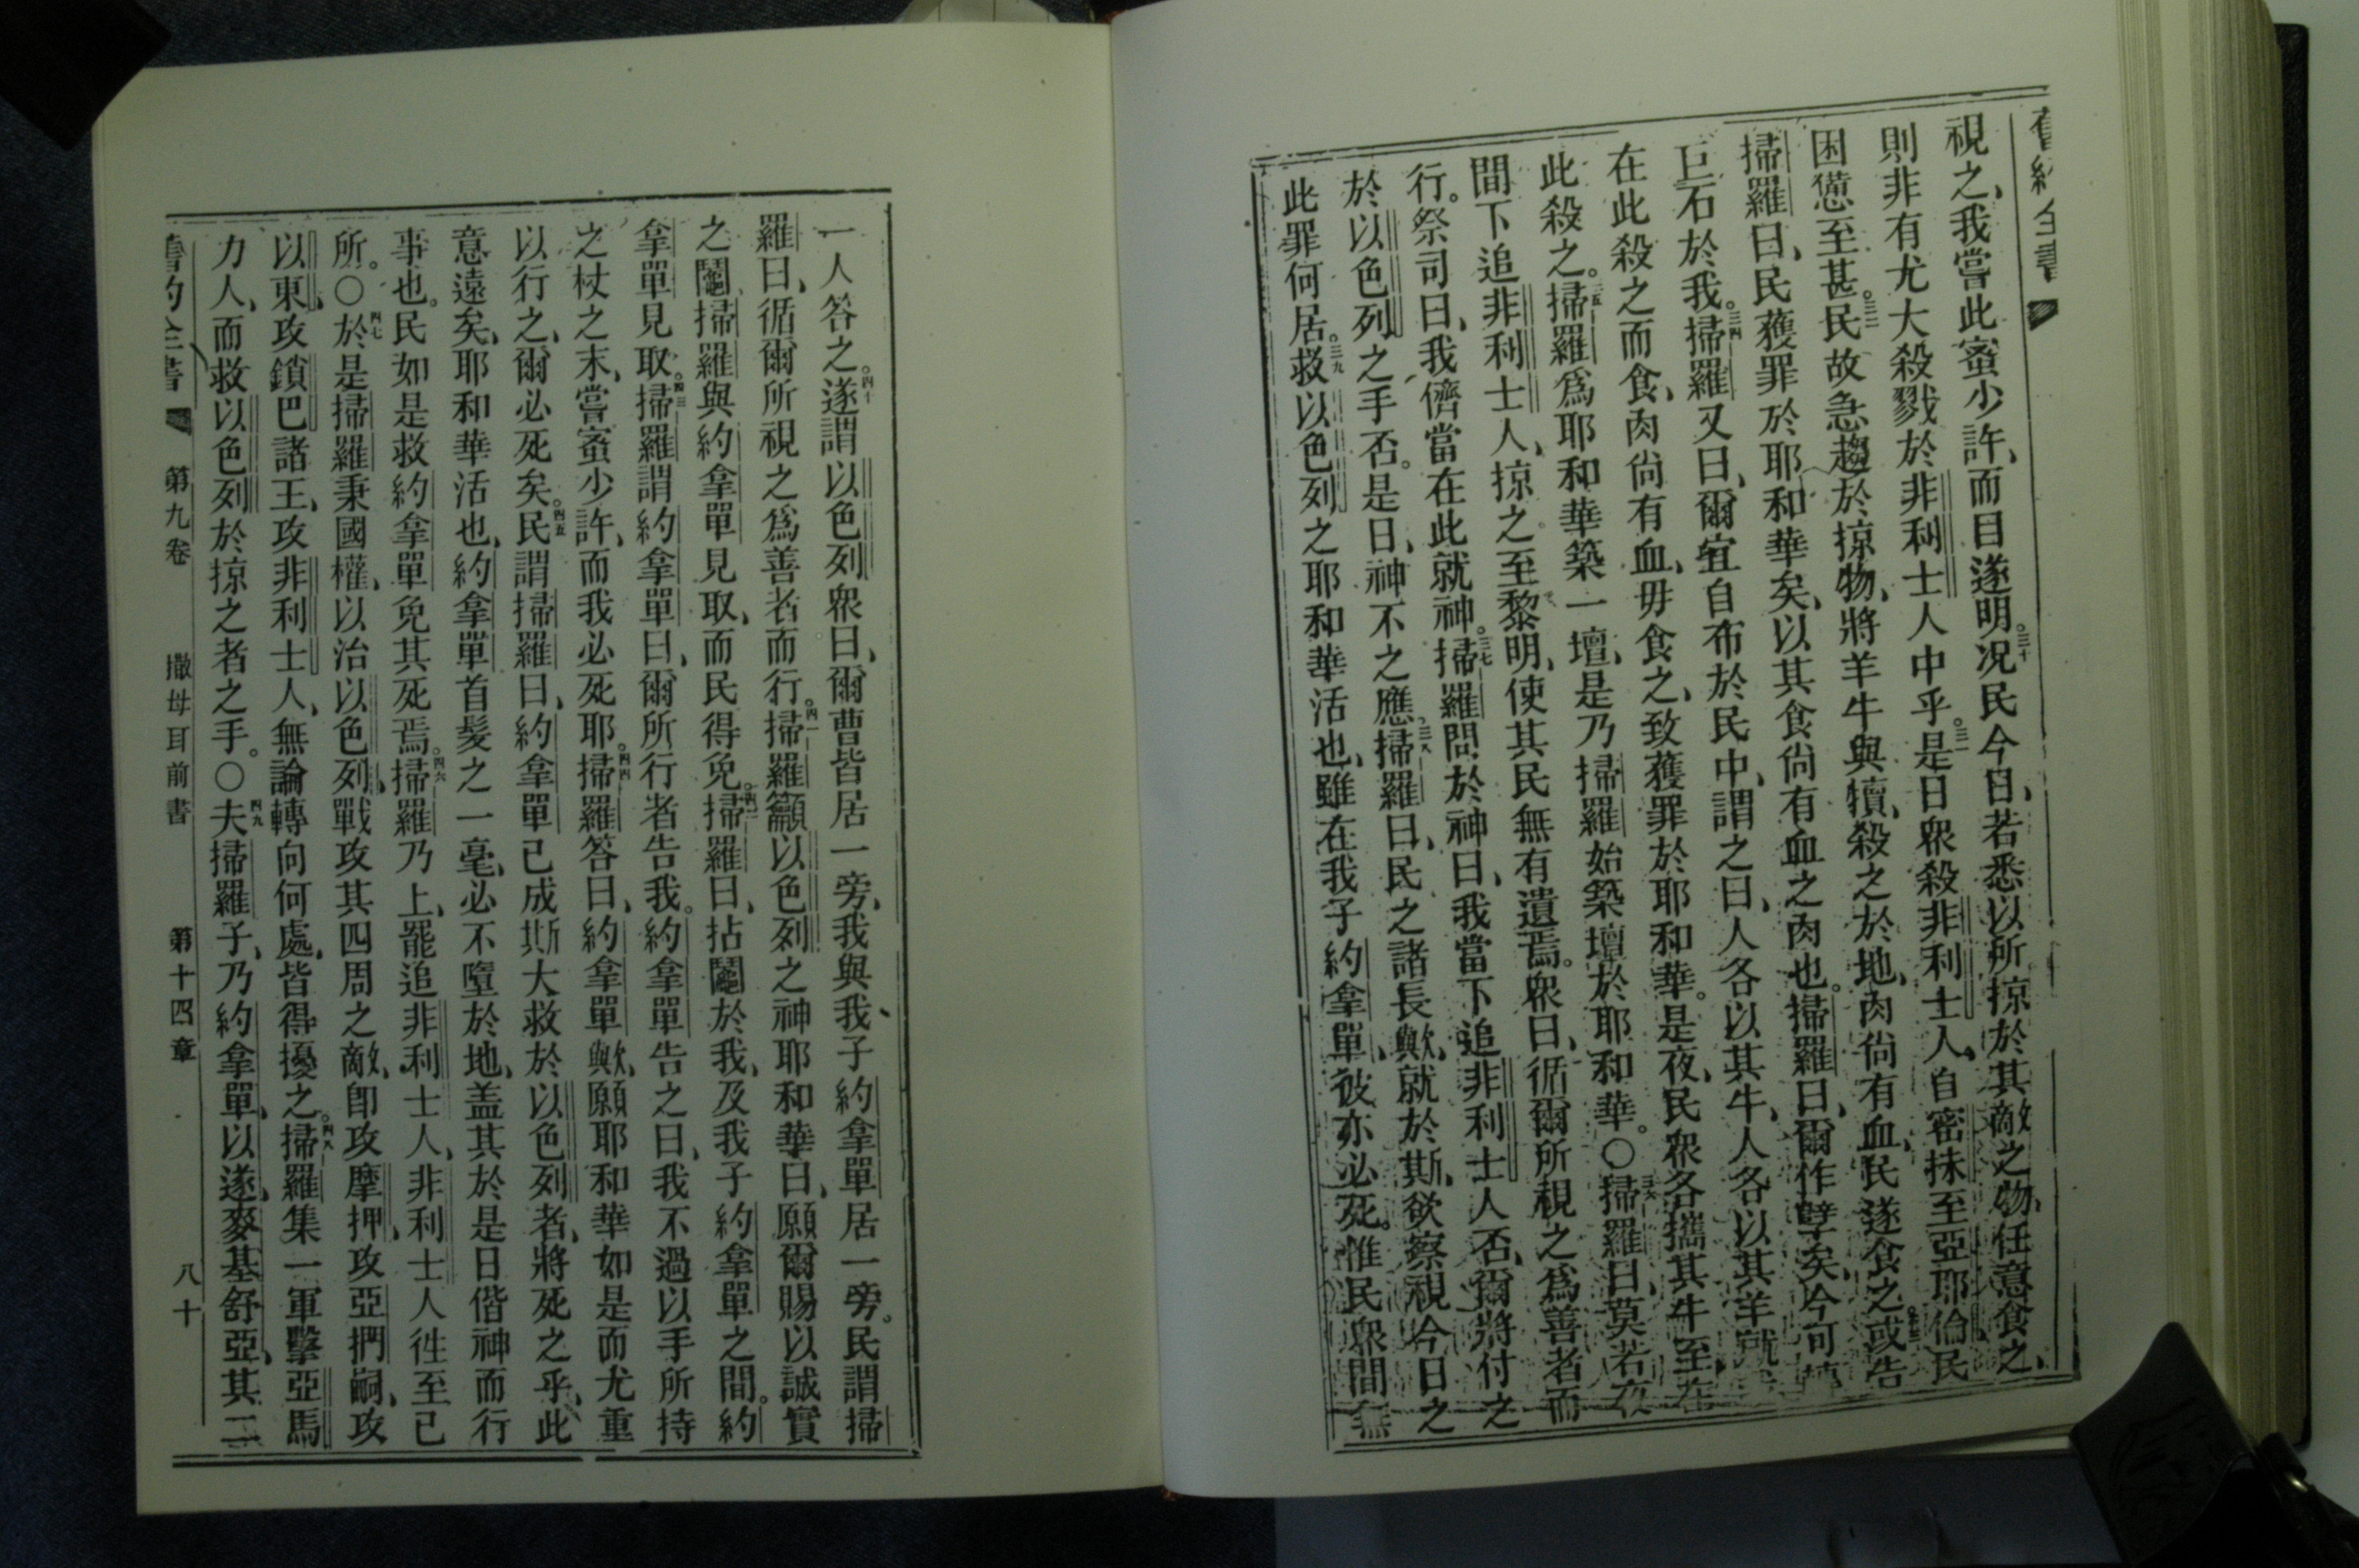 舊約全書
視之、我嘗此蜜少許、而目遂明。三十况民今日、若悉以所掠於其敵之物、任意食之、
則非有尤大殺戮於非利士人中乎。三一是日衆殺非利士人、自密抹至亞耶倫、民
困憊至甚。三二民故急趨於掠物、將羊牛與犢、殺之於地、肉尙有血、民遂食之、或告
掃羅曰、民獲罪於耶和華矣、以其食尙有血之肉也。掃羅曰、爾作孽矣、今可
巨石於我。三四掃羅又曰、爾宜自布於民中、謂之曰、人各以其牛、人各以其羊就
在此殺之而食、肉尙有血、毋食之、致獲罪於耶和華。是夜、民衆各攜其牛至在
此殺之。三五掃羅爲耶和華築一壇、是乃掃羅始築壇於耶和華。○三六掃羅曰、莫若夜
間下追非利士人、掠之至黎明、使其民無有遺焉。衆曰、循爾所視之爲善者而
行。祭司曰、我儕當在此就神。三七掃羅問於神曰、我當下追非利士人否、爾將付之
於以色列之手否。是日、神不之應。三八掃羅曰、民之諸長歟、就於斯、欲察視今日之
此罪何居。三九救以色列之耶和華活也、雖在我子約拿單、彼亦必死。惟民衆間無
一人答之。四十遂謂以色列衆曰、爾曹皆居一旁、我與我子約拿單居一旁。民謂掃
羅曰、循爾所視之爲善者而行。四一掃羅籲以色列之神耶和華曰、願爾賜以誠實
之鬮、掃羅與約拿單見取、而民得免。四二掃羅曰、拈鬮於我、及我子約拿單之間。約
拿單見取。四三掃羅謂約拿單曰、爾所行者告我。約拿單告之曰、我不過以手所持
之杖之末、嘗蜜少許、而我必死耶。四四掃羅答曰、約拿單歟、願耶和華如是而尤重
以行之、爾必死矣。四五民謂掃羅曰、約拿單已成斯大救於以色列者、將死之乎、此
意遠矣、耶和華活也、約拿單首髮之一毫、必不墮於地、盖其於是日偕神而行
事也。民如是救約拿單免其死焉。四六掃羅乃上、罷追非利士人、非利士人徃至己
所。○四七於是掃羅秉國權、以治以色列、戰攻其四周之敵、卽攻摩押、攻亞捫嗣、攻
以東、攻鎖巴諸王、攻非利士人、無論轉向何處、皆得擾之。四八掃羅集一軍、擊亞馬
力人、而救以色列於掠之者之手。○四九夫掃羅子、乃約拿單、以遂、麥基舒亞、其二
舊約全書 第九卷 撒母耳前書 第十四章 八十